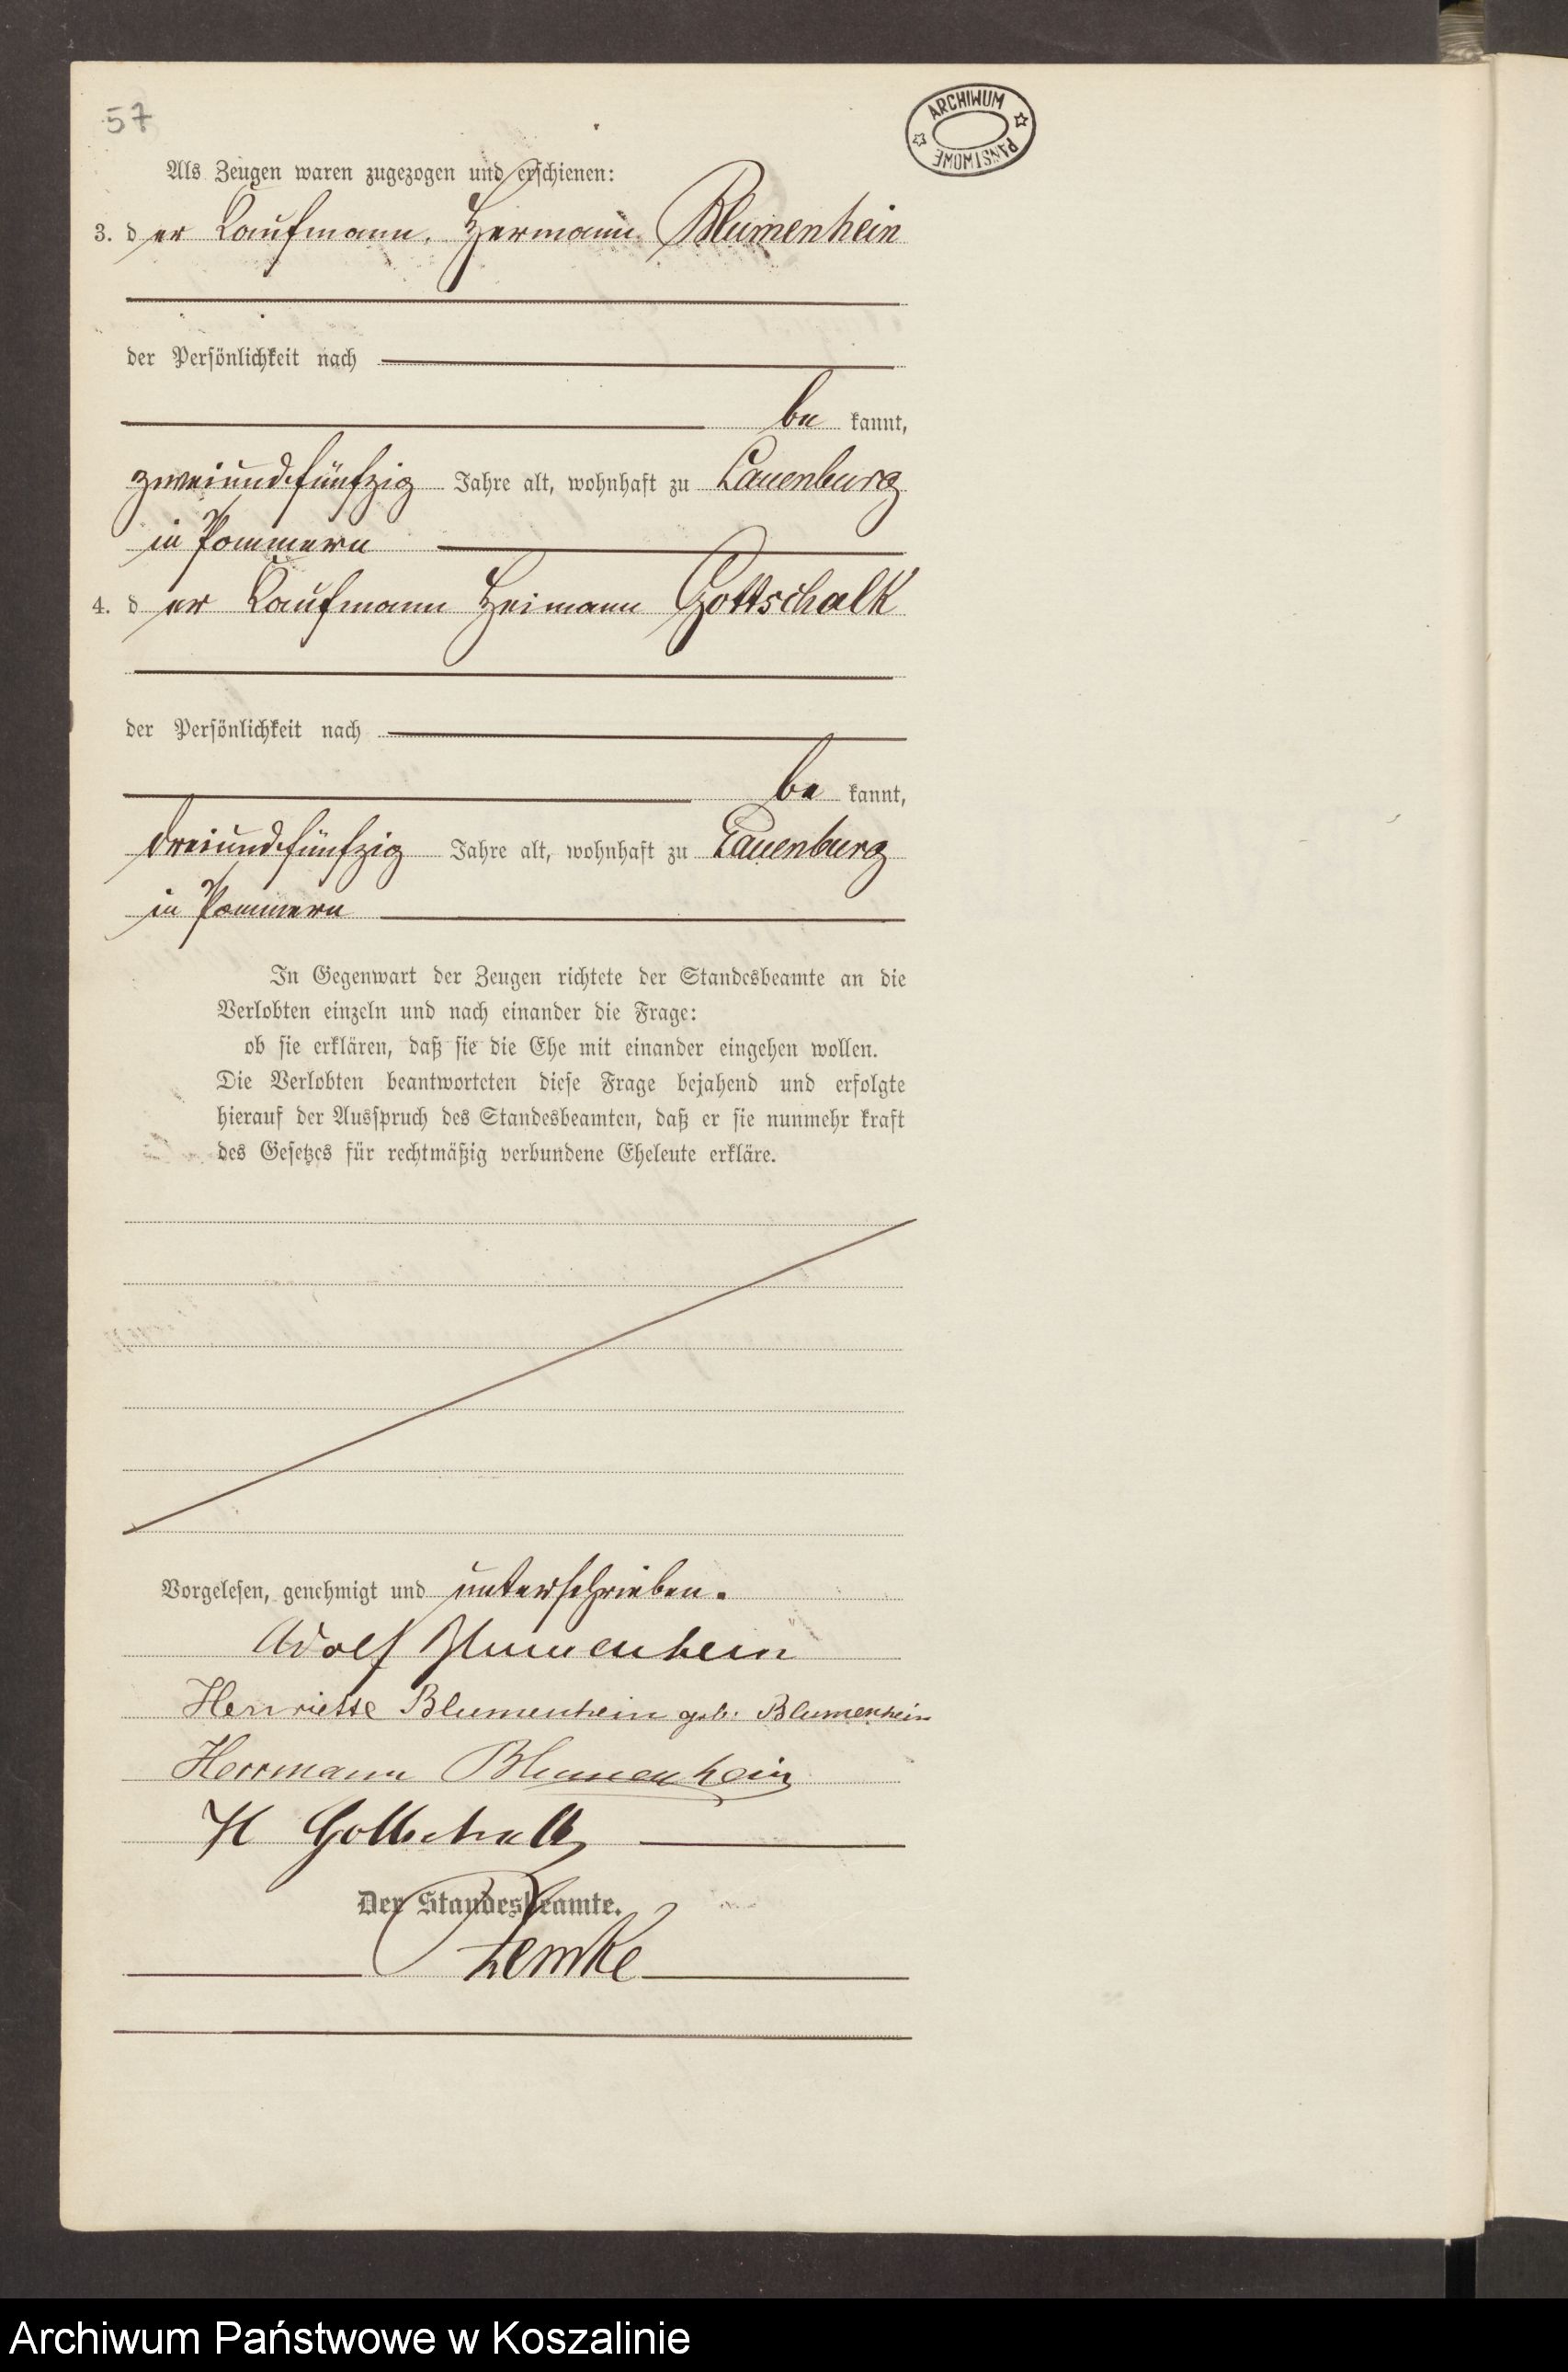 57
ARCHIWUM PAŃSTWOWE
Als Zeugen waren zugezogen und erschienen:
3. der Kaufmann Hermann Blumenhein
der Persönlichkeit nach
be kannt,
zweiundfünfzig Jahre alt, wohnhaft zu Lauenburg
in Pommern
4. der Kaufmann Heimann Gottschalk
der Persönlichkeit nach
be kannt,
dreiundfünfzig Jahre alt, wohnhaft zu Lauenburg
in Pommern
In Gegenwart der Zeugen richtete der Standesbeamte an die
Verlobten einzeln und nach einander die Frage:
ob sie erklären, daß sie die Ehe mit einander eingehen wollen.
Die Verlobten beantworteten diese Frage bejahend und erfolgte
hierauf der Ausspruch des Standesbeamten, daß er sie nunmehr kraft
des Gesetzes für rechtmäßig verbundene Eheleute erkläre.
Vorgelesen, genehmigt und unterschrieben.
Adolf Blumenhein
Henriette Blumenhein geb. Blumenhein
Herrmann Blumenhein
H Gottschalk
Der Standesbeamte.
Lemke
Archiwum Państwowe w Koszalinie